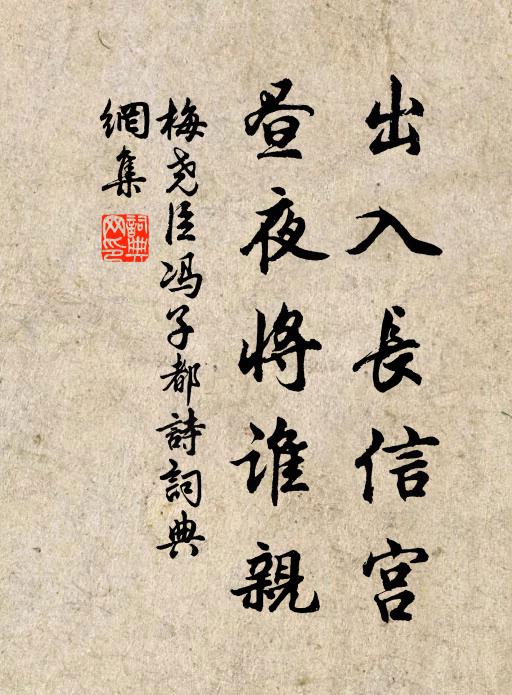 出入長信宮
昼夜将誰親
梅尧臣冯子都詩詞典
網集
詞典网印